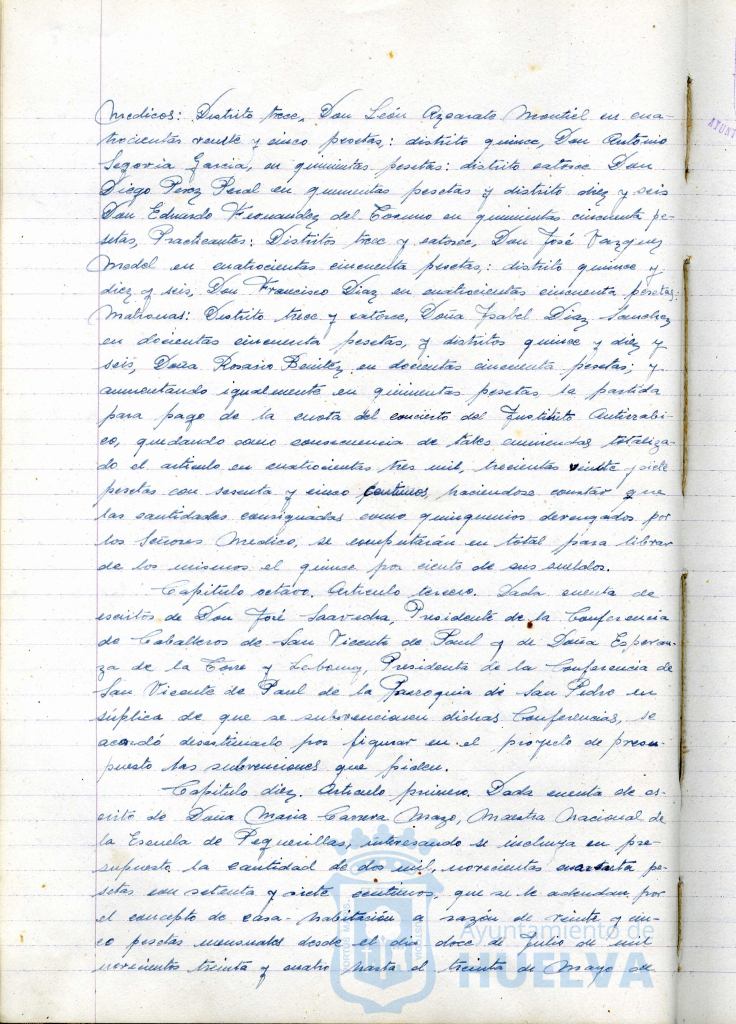 Medicos: Distrito trece, Don León Azcarate Montiel en cua-
trocientas veinte y cinco pesetas,: distrito quince, Don Antonio
Segovia Garcia, en quinientas pesetas: distrito catorce Don
Diego Perez Peral en quinientas pesetas y distrito diez y seis
Don Eduardo Fernandez del Torno en quinientas cincuenta pe-
setas, Practicantes: Distritos trece y catorce, Don José Vazquez
Medel en cuatrocientas cincuenta pesetas,: distrito quince y
diez y seis, Don Francisco Diaz en cuatrocientas cincuenta pesetas:
Matronas: Distrito trece y catorce, Doña Isabel Diaz Sanchez
en docientas cincuenta pesetas, y distritos quince y diez y
seis, Doña Rosario Benitez en docientas cincuenta pesetas; y
aumentando igualmente en quinientas pesetas la partida
para pago de la cuota del concierto del Instituto Antirrabi-
co, quedando como consecuencia de tales enmiendas totaliza-
do el articulo en cuatrocientas tres mil, trecientas veinte y siete
pesetas con sesenta y cinco centimos, haciendose constar que
las cantidades consignadas como quinquenios devengados por
los Señores Medico, se computarán en total para librar
de los mismos el quince por ciento de sus sueldos.
Capitulo octavo. Articulo tercero. Dada cuenta de
escritos de Don José Saavedra, Presidente de la Conferencia
de Caballeros de San Vicente de Paul y de Doña Esperan-
za de la Torre y Presidenta de la Conferencia de
San Vicente de Paul de la Parroquia de San Pedro en
súplica de que se subvencionen dichas Conferencias, se
acordó desestimarlo por figurar en el proyecto de presu-
puesto las subvenciones que piden.
Capitulo diez. Articulo primero. Dada cuenta de es-
crito de Doña Maria Carrera Mazo, Maestra Nacional de
la Escuela de Pequerillas, interesando se incluya en pre-
supuesto la cantidad de dos mil, novecientas cuarenta pe-
setas con setenta y siete centimos, que se le adeudan por
el concepto de casa-habitación a razón de veinte y cin-
co pesetas mensuales desde el dia doce de Julio de mil
novecientos treinta y cuatro hasta el treinta de Mayo de
Ayuntamiento de
HUELVA